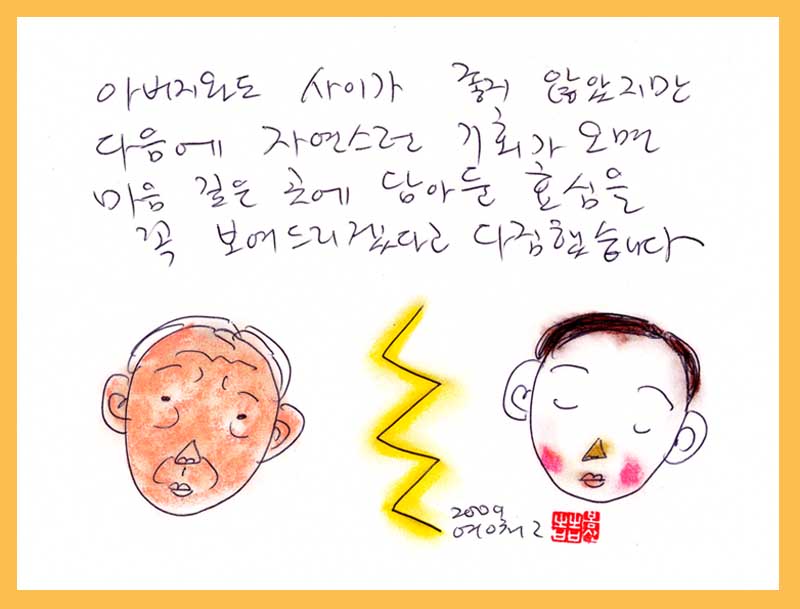 아버지와도 사이가 좋지 않았지만
다음에 자연스런 기회가 오면
마음 깊은 곳에 담아둔 효심을
꼭 보여드리겠다고 다짐했습니다
2009